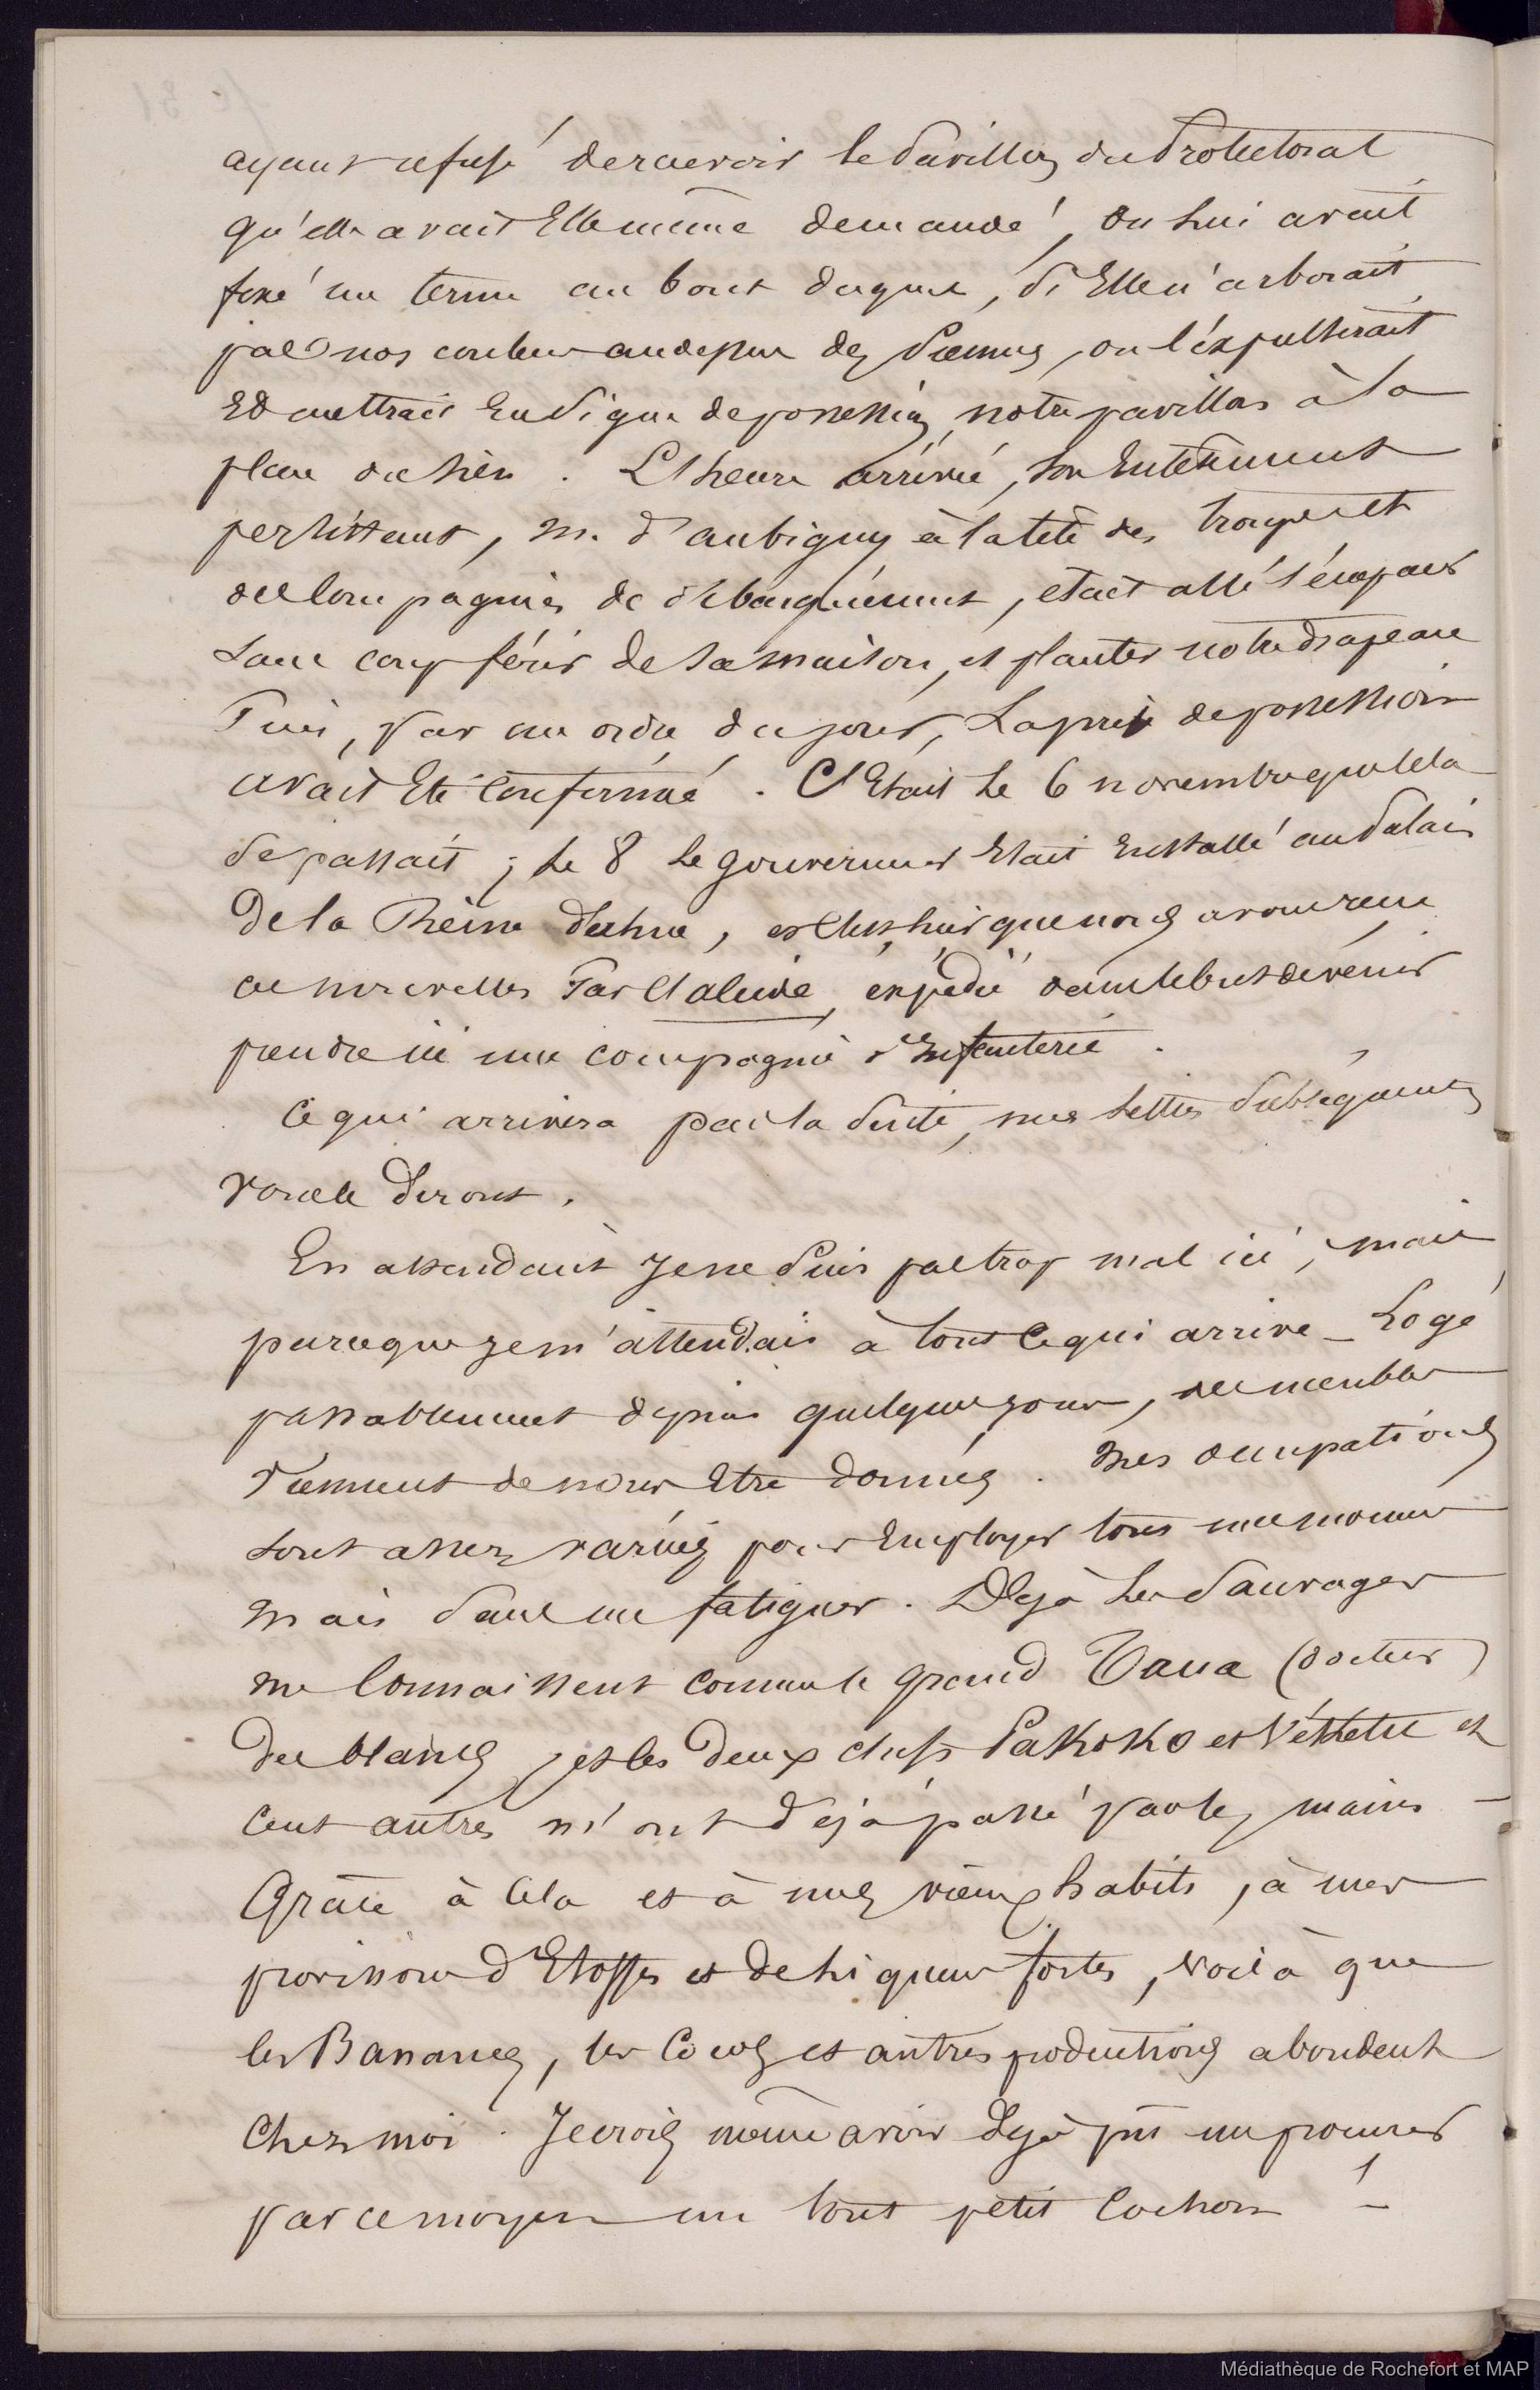 ayant refusé de recevoir le Pavillon du Protectorat
qu'elle avait Elle même demandé, on lui avait
fixé un terme au bout duquel, Si Elle n'arborait
pas nos couleurs au dessus des Siennes, on l'expulserait
Et mettrait En Signe de possession notre pavillon à la
place du sien. L'heure arrivée, son Entêtement
persistant, M. d'aubigny à la tête des troupes et
des Compagnies de débarquement, était allé s'emparer
Sans coup férir de sa maison, et planter notre drapeau
Puis, par un ordre du jour, La prise de possession
avait Eté Confirmé. C'Etait le 6 novembre que cela
Se passait ; le 8 le gouverneur Etait Installé au Palais
De la Reine déchue, et C'est hier que nous avons reçu
ces nouvelles Par l'alcide, expédié dans le but de venir
prendre ici une compagnie d'Infanterie.
Ce qui arrivera par la Suite, mes lettres Subséquentes
vous le Diront.
En attendant Je ne Suis pas trop mal ici, mais
parceque je m'attendais à tout Ce qui arrive - Logé
passablement depuis quelques jours, des meubles
Viennent de nous Etre donnés. Mes occupations
Sont assez variées pour Employer tous mes momens
Mais Sans me fatiguer. Déjà les Sauvages
me Connaissent comme le grand Taua (docteur)
Des blancs, et les Deux chefs Pakoko et Véketu et
Cent autres m'ont déjà passé par les mains -
Grâce à Cela et à mes vieux habits, à mes
provisions d'Etoffes et de liqueurs fortes, voilà que
les Bananes, les Cocos et autres productions abondent
Chez moi. Je crois même avoir déjà pu me procurer
par ce moyen un tout petit Cochon !
Médiathèque de Rochefort et MAP